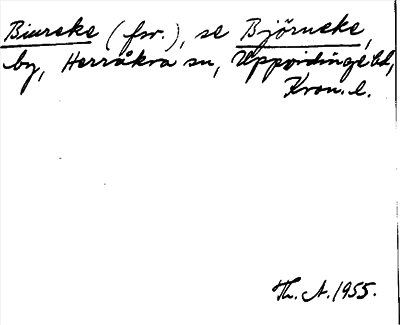 Biureke (fsv.), se Björneke,
by, Herråkra sn, Uppvidinge hd,
Kron. l.
Th. A. 1955.